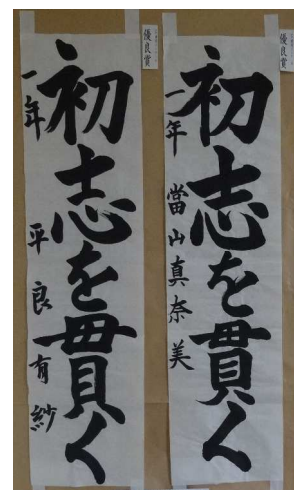 優良賞
初志を貫く
一年 當山真奈美
優良賞
初志を貫く
一年 平良有紗